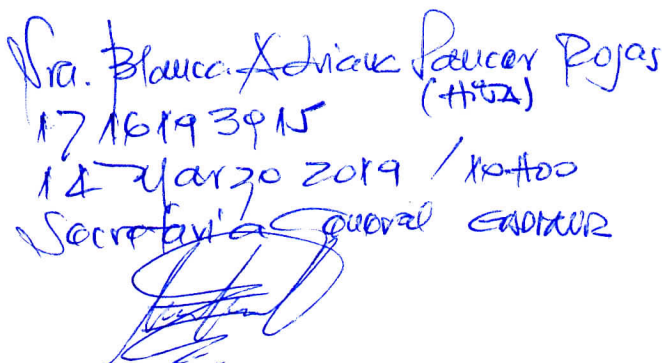 Sra. Blanca Adriana Paucar Rojas
(HiJA)
1716193915
14 Marzo 2019 / 10H00
Secretaría General GADMUR